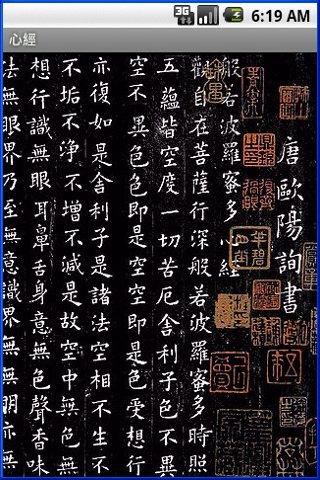 3G 6:19 AM
心經
唐歐陽詢書
般若波羅蜜多心經
觀自在菩薩行深般若波羅蜜多時照
五蘊皆空度一切苦厄舍利子色不異
空不異色色即是空空即是色受想行
亦復如是舍利子是諸法空相不生不
不垢不淨不增不減是故空中無色無
想行識無眼耳鼻舌身意無色聲香味
法無眼界乃至無意識界無無明亦無